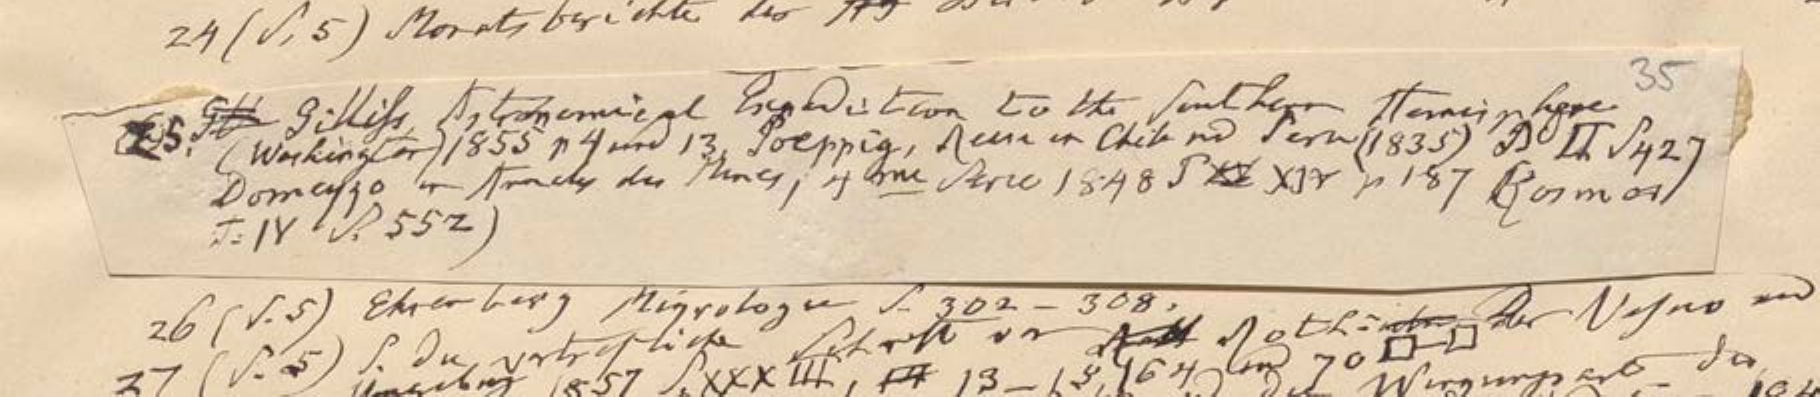 24 (S. 5) Monatsberichte der
35
25. Gilliss, Astronomical Expedition to the Southern Hemisphere
(Washington) 1855 p 4 und 13, Poeppig, Reise in Chile und Peru (1835) Bd II S 427
Domeyko in Annales des Mines, 4 ème Serie 1848 T XIV p 187 Kosmos
T. IV S. 552)
26 (S. 5) Ehrenberg Migrologie S. 302 – 308.
27 (S. 5) S. die vortrefliche Schrift von Roth: Der Vesuv und
Umgebung 1857 S. XXXIII, 13 – 18, 164 und 70